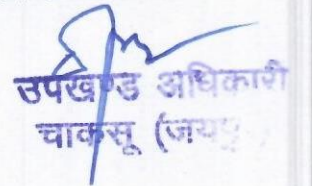 उपखण्ड अधिकारी
चाकसू (जयपु